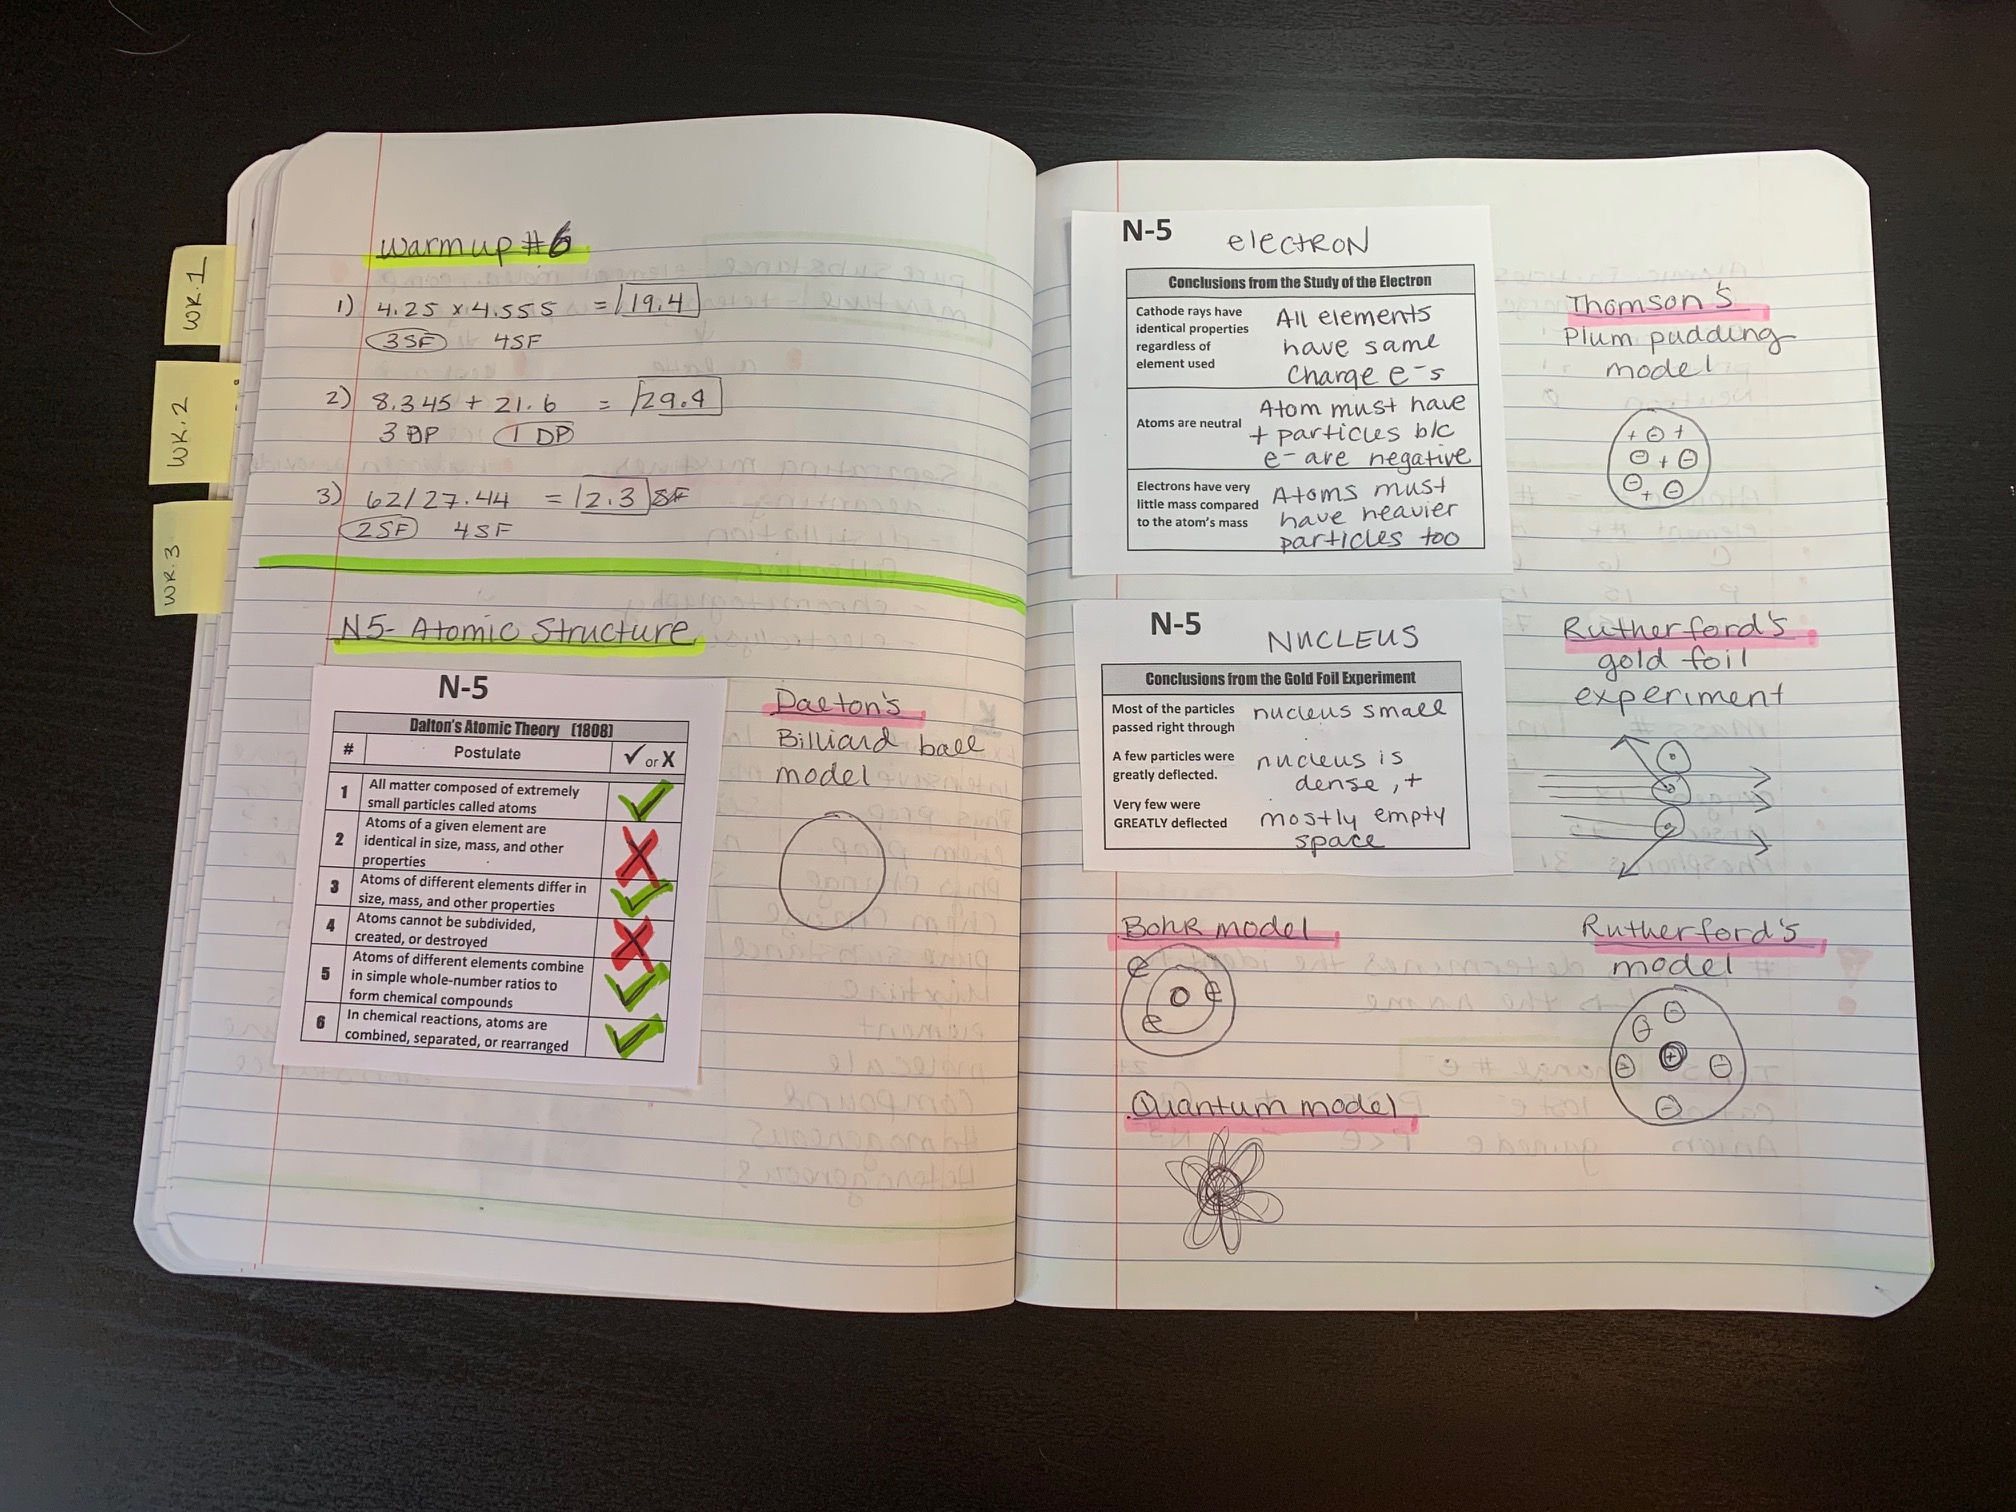 WK.1
WK.2
WK.3
Warmup #6
1) 4.25 x 4.555 = 19.4
3SF 4SF
2) 8.345 + 21.6 = 29.9
3 DP 1 DP
3) 62/27.44 = 2.3
2SF 4SF
N5- Atomic Structure
N-5
Dalton's Atomic Theory (1808)
# Postulate ✓ or X
1 All matter composed of extremely
small particles called atoms ✓
2 Atoms of a given element are
identical in size, mass, and other
properties X
3 Atoms of different elements differ in
size, mass, and other properties ✓
4 Atoms cannot be subdivided,
created, or destroyed X
5 Atoms of different elements combine
in simple whole-number ratios to
form chemical compounds ✓
6 In chemical reactions, atoms are
combined, separated, or rearranged ✓
Dalton's
Billiard ball
model
N-5 electron
Conclusions from the Study of the Electron
Cathode rays have
identical properties
regardless of
element used
All elements
have same
charge e-s
Atoms are neutral
Atom must have
+ particles b/c
e- are negative
Electrons have very
little mass compared
to the atom's mass
Atoms must
have heavier
particles too
Thomson's
Plum pudding
model
+ - +
- + -
- + -
N-5 NUCLEUS
Conclusions from the Gold Foil Experiment
Most of the particles
passed right through
nucleus small
A few particles were
greatly deflected.
nucleus is
dense, +
Very few were
GREATLY deflected
mostly empty
space
Rutherford's
gold foil
experiment
Bohr model
e
e
e
Quantum model
Rutherford's
model
-
-
- + -
-